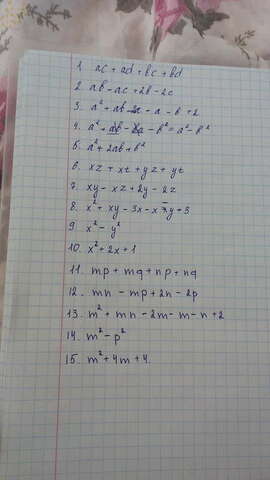 1. ac + ad + bc + bd
2. ab - ac + 2b - 2c
3. a² + ab - 2a - a - b + 2
4. a² + ab - ba - b² = a² - b²
5. a² + 2ab + b²
6. xz + xt + yz + yt
7. xy - xz + 2y - 2z
8. x² + xy - 3x - x - y + 3
9. x² - y²
10. x² + 2x + 1
11. mp + mq + np + nq
12. mn - mp + 2n - 2p
13. m² + mn - 2m - m - n + 2
14. m² - p²
15. m² + 4m + 4.